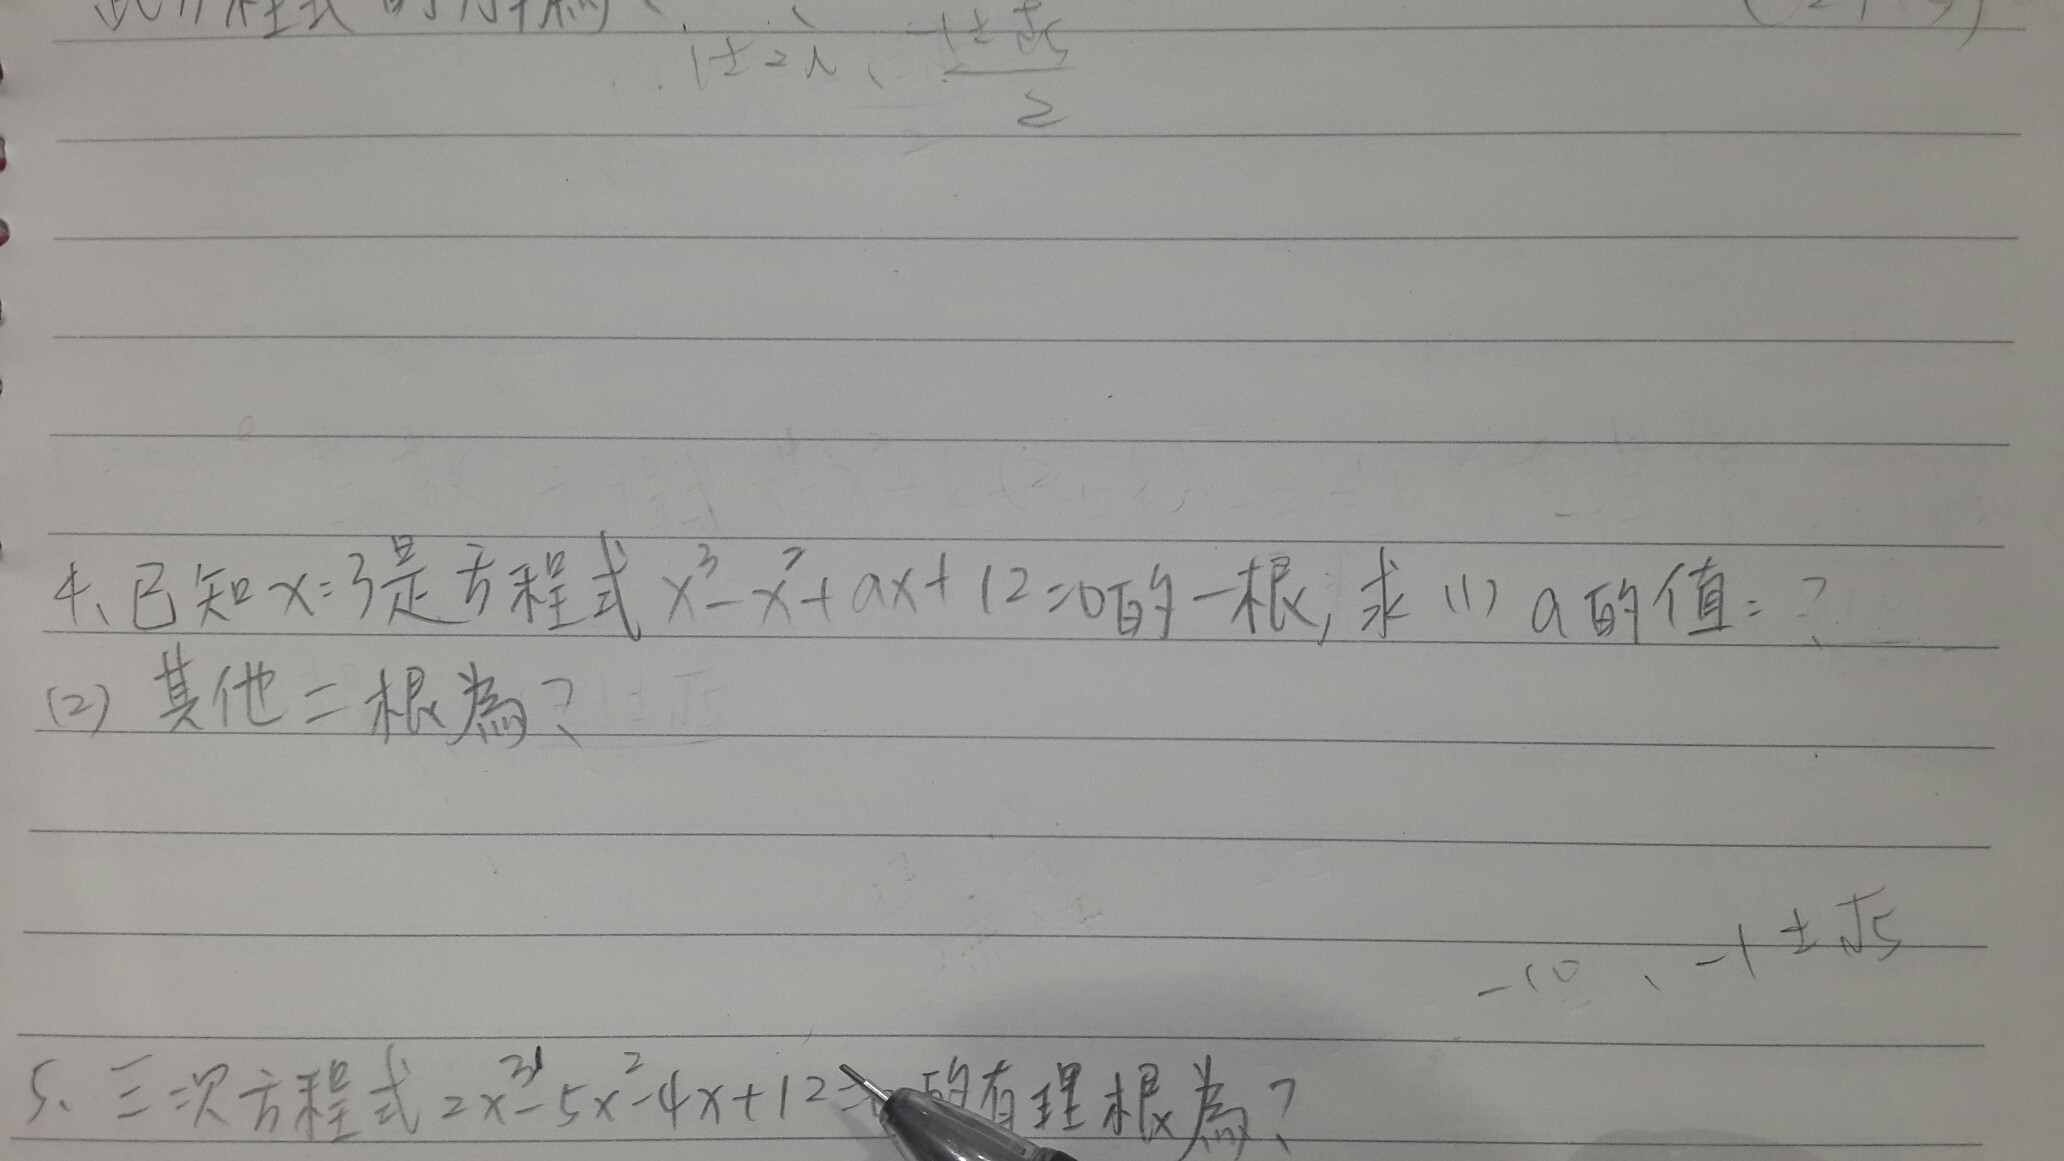 程式的
1±2i、(-1±√5)/2
4、已知x=3是方程式x³-x²+ax+12=0的一根,求(1) a的值=?
(2) 其他二根為?
-10、-1±√5
5、三次方程式2x³-5x²-4x+12=0的有理根為?